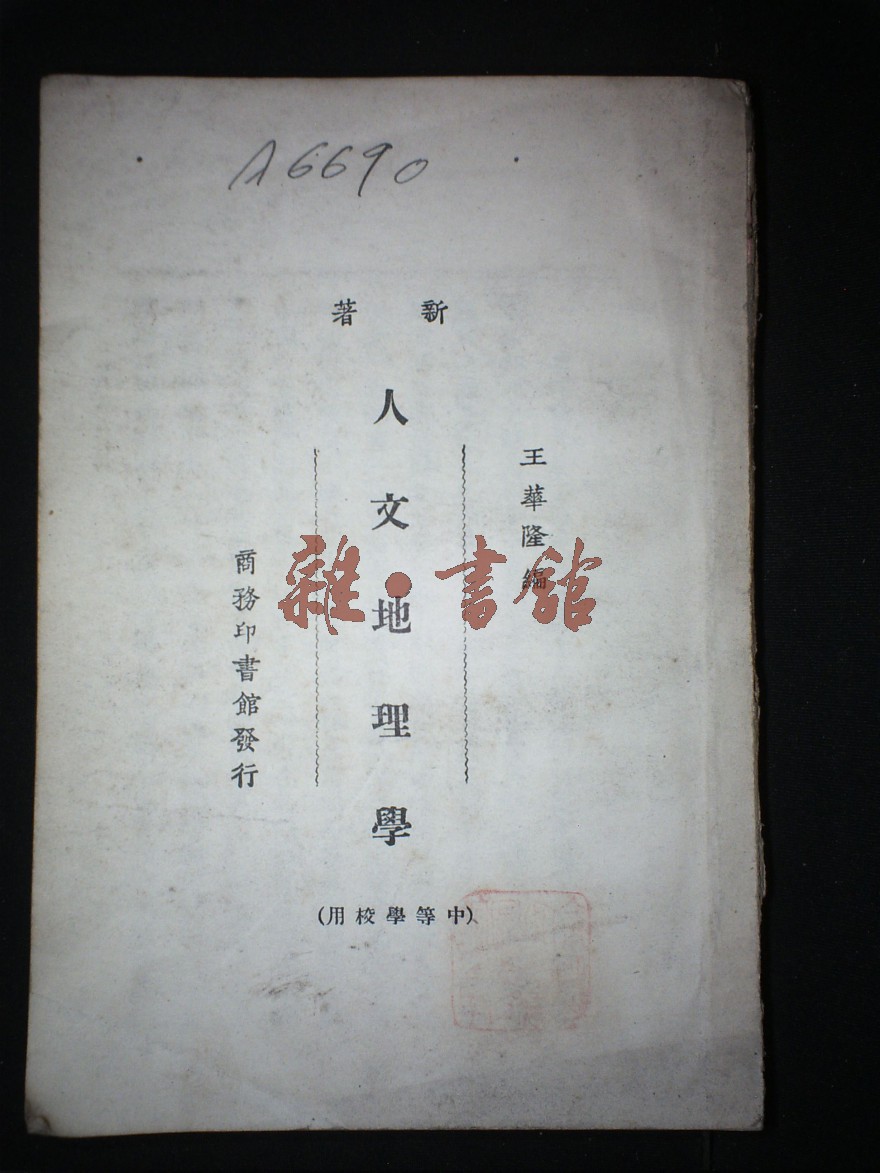 A6690
新著
王華隆編
人文地理學
商務印書館發行
(中等學校用)
雜·書館